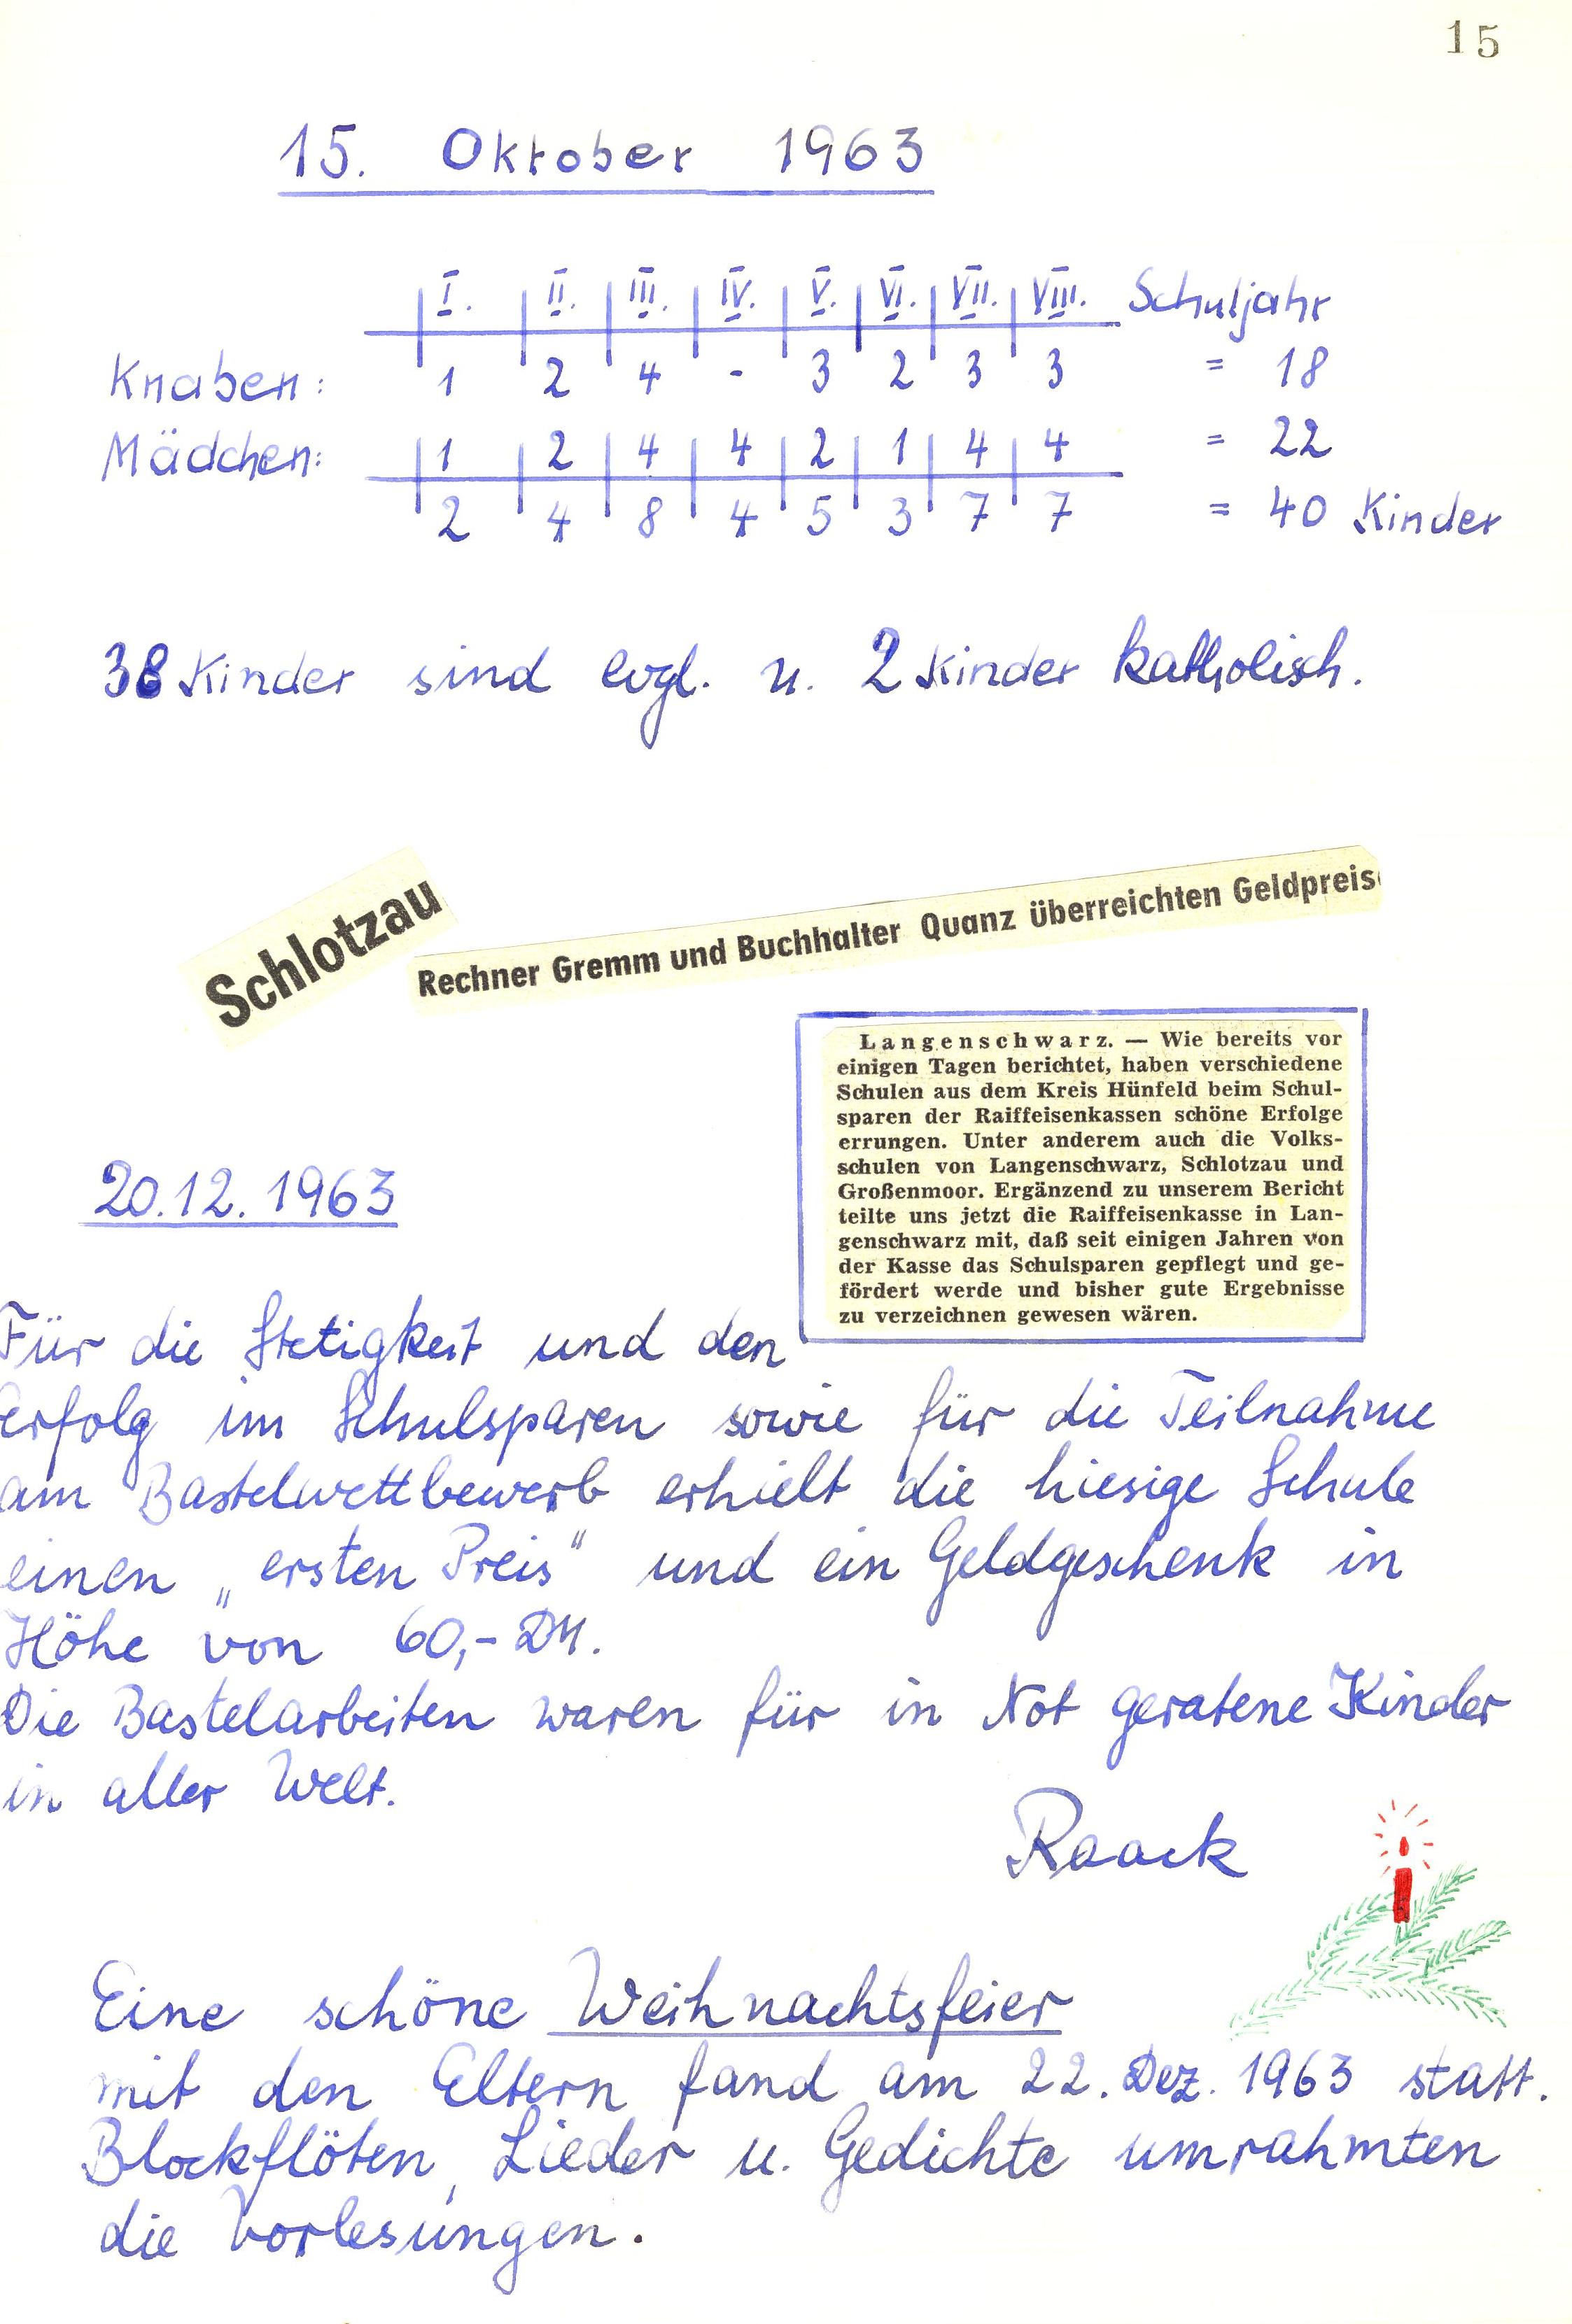 15
15. Oktober 1963
I. II. III. IV. V. VI. VII. VIII. Schuljahr
Knaben: 1 2 4 - 3 2 3 3 = 18
Mädchen: 1 2 4 4 2 1 4 4 = 22
2 4 8 4 5 3 7 7 = 40 Kinder
38 Kinder sind evgl. u. 2 Kinder katholisch.
Schlotzau
Rechner Gremm und Buchhalter Quanz überreichten Geldpreise
Langenschwarz. — Wie bereits vor
einigen Tagen berichtet, haben verschiedene
Schulen aus dem Kreis Hünfeld beim Schul-
sparen der Raiffeisenkassen schöne Erfolge
errungen. Unter anderem auch die Volks-
schulen von Langenschwarz, Schlotzau und
Großenmoor. Ergänzend zu unserem Bericht
teilte uns jetzt die Raiffeisenkasse in Lan-
genschwarz mit, daß seit einigen Jahren von
der Kasse das Schulsparen gepflegt und ge-
fördert werde und bisher gute Ergebnisse
zu verzeichnen gewesen wären.
20.12.1963
Für die Stetigkeit und den
Erfolg im Schulsparen sowie für die Teilnahme
am Bastelwettbewerb erhielt die hiesige Schule
einen „ersten Preis" und ein Geldgeschenk in
Höhe von 60,- DM.
Die Bastelarbeiten waren für in Not geratene Kinder
in aller Welt.
Raack
Eine schöne Weihnachtsfeier
mit den Eltern fand am 22. Dez. 1963 statt.
Blockflöten, Lieder u. Gedichte umrahmten
die Vorlesungen.